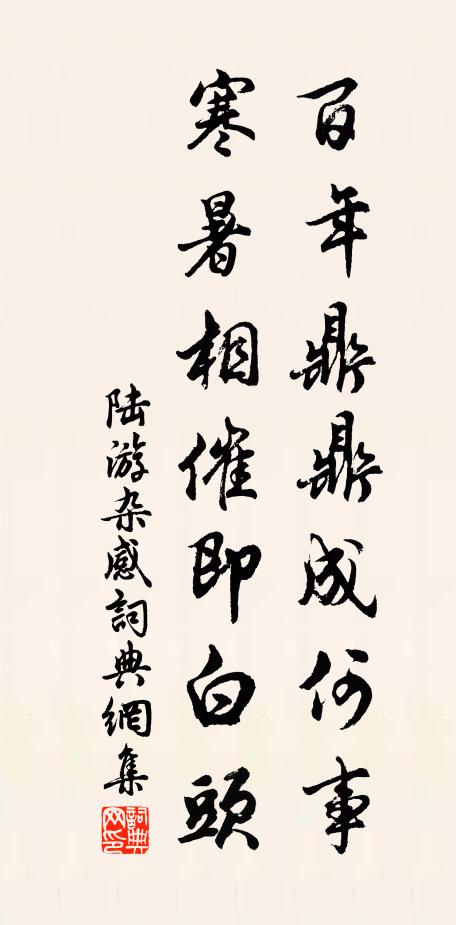 百年鼎鼎成何事
寒暑相催即白頭
陆游杂感詞典網集
詞典網印